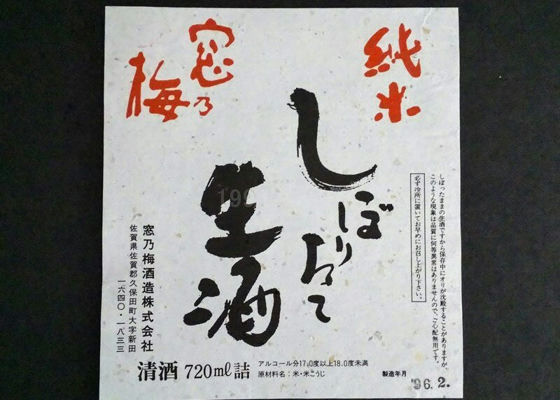 純米
窓乃梅
しぼりたて
生酒
しぼったままの生酒ですから保存中にオリが沈殿することがありますが、
このような現象は品質に何等異常はありませんので、ご心配無用です。
必ず冷所に置いてお早めにお召し上がり下さい。
窓乃梅酒造株式会社
佐賀県佐賀郡久保田町大字新田
一六四〇・一八三三
清酒 720ml詰
アルコール分17.0度以上18.0度未満
原材料名：米・米こうじ
製造年月
'96. 2.